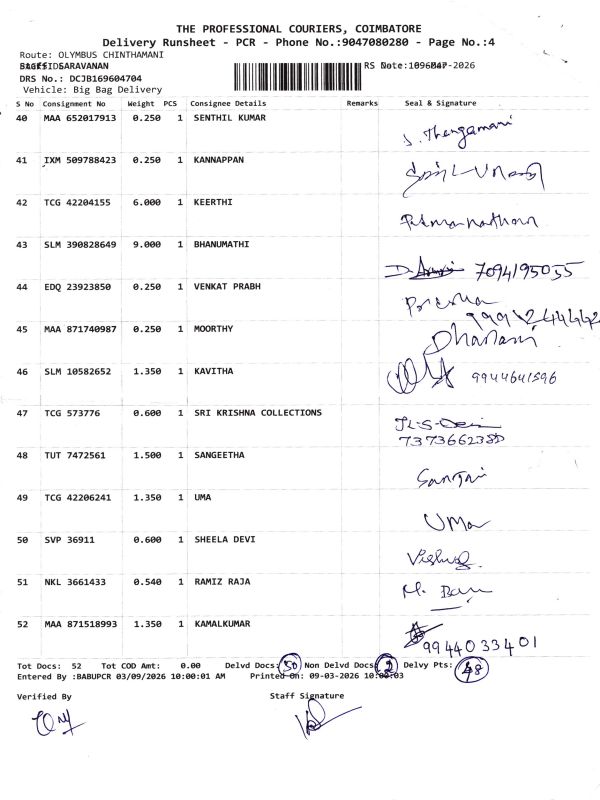 THE PROFESSIONAL COURIERS, COIMBATORE
Delivery Runsheet - PCR - Phone No.:9047080280 - Page No.:4
Route: OLYMBUS CHINTHAMANI
SARAVANAN
DRS No.: DCJB169604704
Vehicle: Big Bag Delivery
S No Consignment No Weight PCS Consignee Details Remarks Seal & Signature
40 MAA 652017913 0.250 1 SENTHIL KUMAR S. Thangamani
41 IXM 509788423 0.250 1 KANNAPPAN
42 TCG 42204155 6.000 1 KEERTHI
43 SLM 390828649 9.000 1 BHANUMATHI 7094195055
44 EDQ 23923850 0.250 1 VENKAT PRABH
45 MAA 871740987 0.250 1 MOORTHY Dharani
46 SLM 10582652 1.350 1 KAVITHA 9944641596
47 TCG 573776 0.600 1 SRI KRISHNA COLLECTIONS
48 TUT 7472561 1.500 1 SANGEETHA
49 TCG 42206241 1.350 1 UMA Uma
50 SVP 36911 0.600 1 SHEELA DEVI
51 NKL 3661433 0.540 1 RAMIZ RAJA
52 MAA 871518993 1.350 1 KAMALKUMAR 9944033401
Tot Docs: 52 Tot COD Amt: 0.00 Delvd Docs: 50 Non Delvd Docs: 2 Delvy Pts: 48
Entered By :BABUPCR 03/09/2026 10:00:01 AM Printed On: 09-03-2026 10:00:03
Verified By Staff Signature